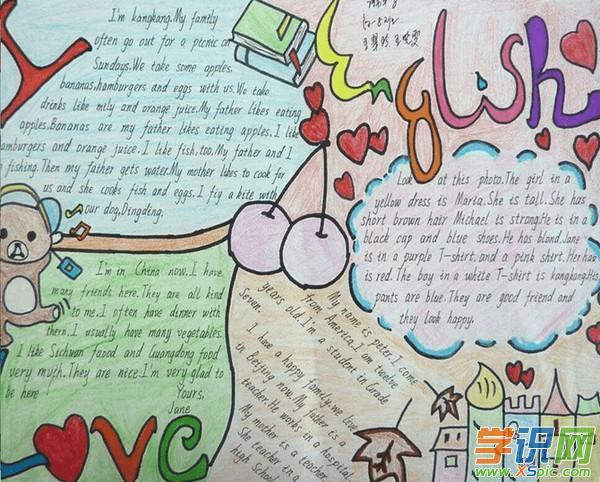 I'm kangkang.My family
often go out for a picnic on
Sundays.We take some apples,
bananas,hamburgers and eggs with us.We take
drinks like mily and orange juice.My father likes eating
apples.Bananas are my father likes eating apples.I like
hamburgers and orange juice.I like fish,too.My father and I
fishing.Then my father gets water.My mother likes to cook for
us and she cooks fish and eggs.I fiy a kite with
our dog,Dingding.
English
Look at this photo.The girl in a
yellow dress is Maria.She is tall.She has
short brown hair Michael is strong.He is in a
black cap and blue shoes.He has blond.Jane
is in a purple T-shirt.and a pink shirt.Her has
is red.The boy in a white T-shirt is kangkang.His
pants are blue.They are good friend and
they look happy.
I'm in China now.I have
many friends here.They are all kind
to me.I often have dinner with
them.I usually have many vegetables.
I like Sichuan faood and Guangdong food
very myth.They are nice.I'm very glad to
be here!
Yours,
Jane
My name is peter.I come
from America.I am twelve
years old.I'm a student in Grade
Seven.
I have a happy family.we live
in Beijing now.My father is a
teacher.He works in a hospital
My mother is a teacher.
She teacher in a
high School
LOVE
学识网
www.XSpic.com